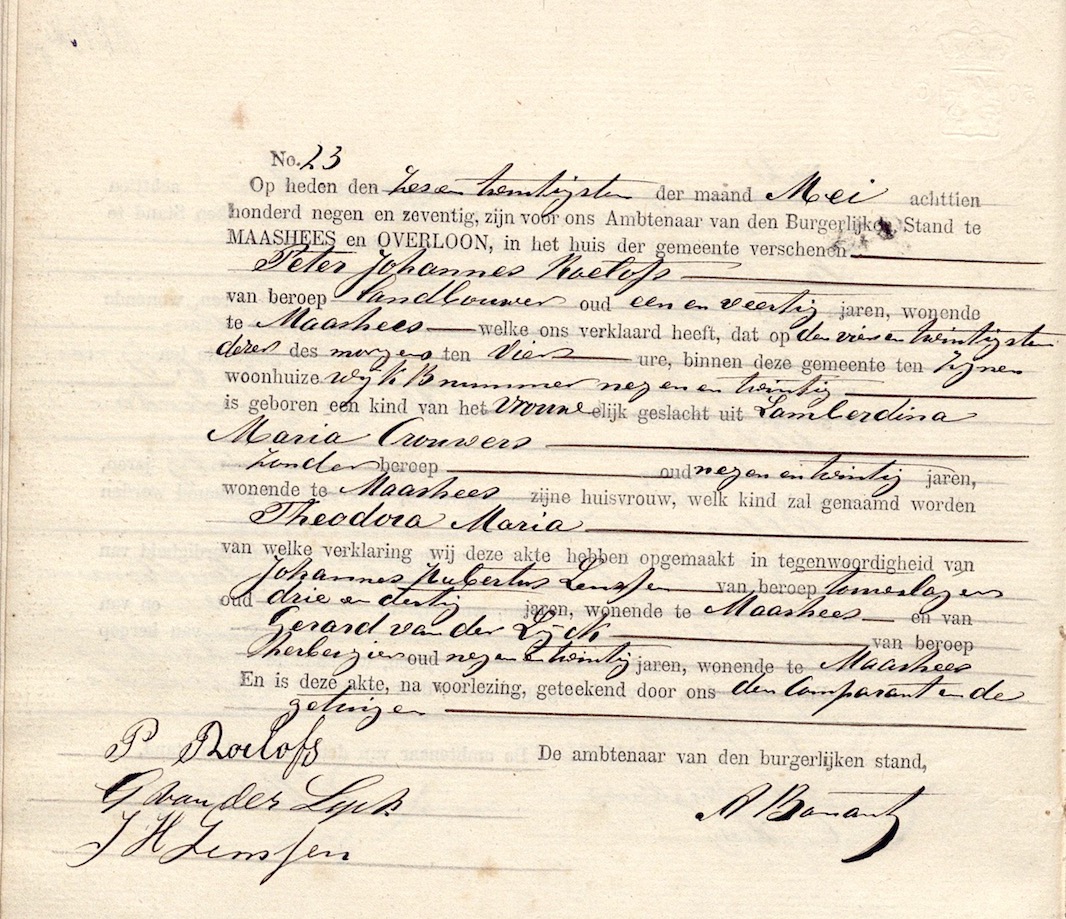 No. 23
Op heden den zes en twintigsten der maand Mei achttien
honderd negen en zeventig, zijn voor ons Ambtenaar van den Burgerlijken Stand te
MAASHEES en OVERLOON, in het huis der gemeente verschenen
Peter Johannes Roelofs
van beroep Landbouwer oud een en veertig jaren, wonende
te Maashees welke ons verklaard heeft, dat op den vier en twintigsten
dezer des morgens ten vier ure, binnen deze gemeente ten zijnen
woonhuize wijk B nummer negen en twintig
is geboren een kind van het vrouwelijk geslacht uit Lamberdina
Maria Crouwers
zonder beroep oud negen en twintig jaren,
wonende te Maashees zijne huisvrouw, welk kind zal genaamd worden
Theodora Maria
van welke verklaring wij deze akte hebben opgemaakt in tegenwoordigheid van
Johannes Hubertus Lenssen van beroep
oud drie en dertig jaren, wonende te Maashees en van
Gerard van der Lijck van beroep
herbergier oud negen en twintig jaren, wonende te Maashees
En is deze akte, na voorlezing, geteekend door ons den Comparant en de
getuigen
P Roelofs De ambtenaar van den burgerlijken stand,
G van der Lijck
J H Lenssen